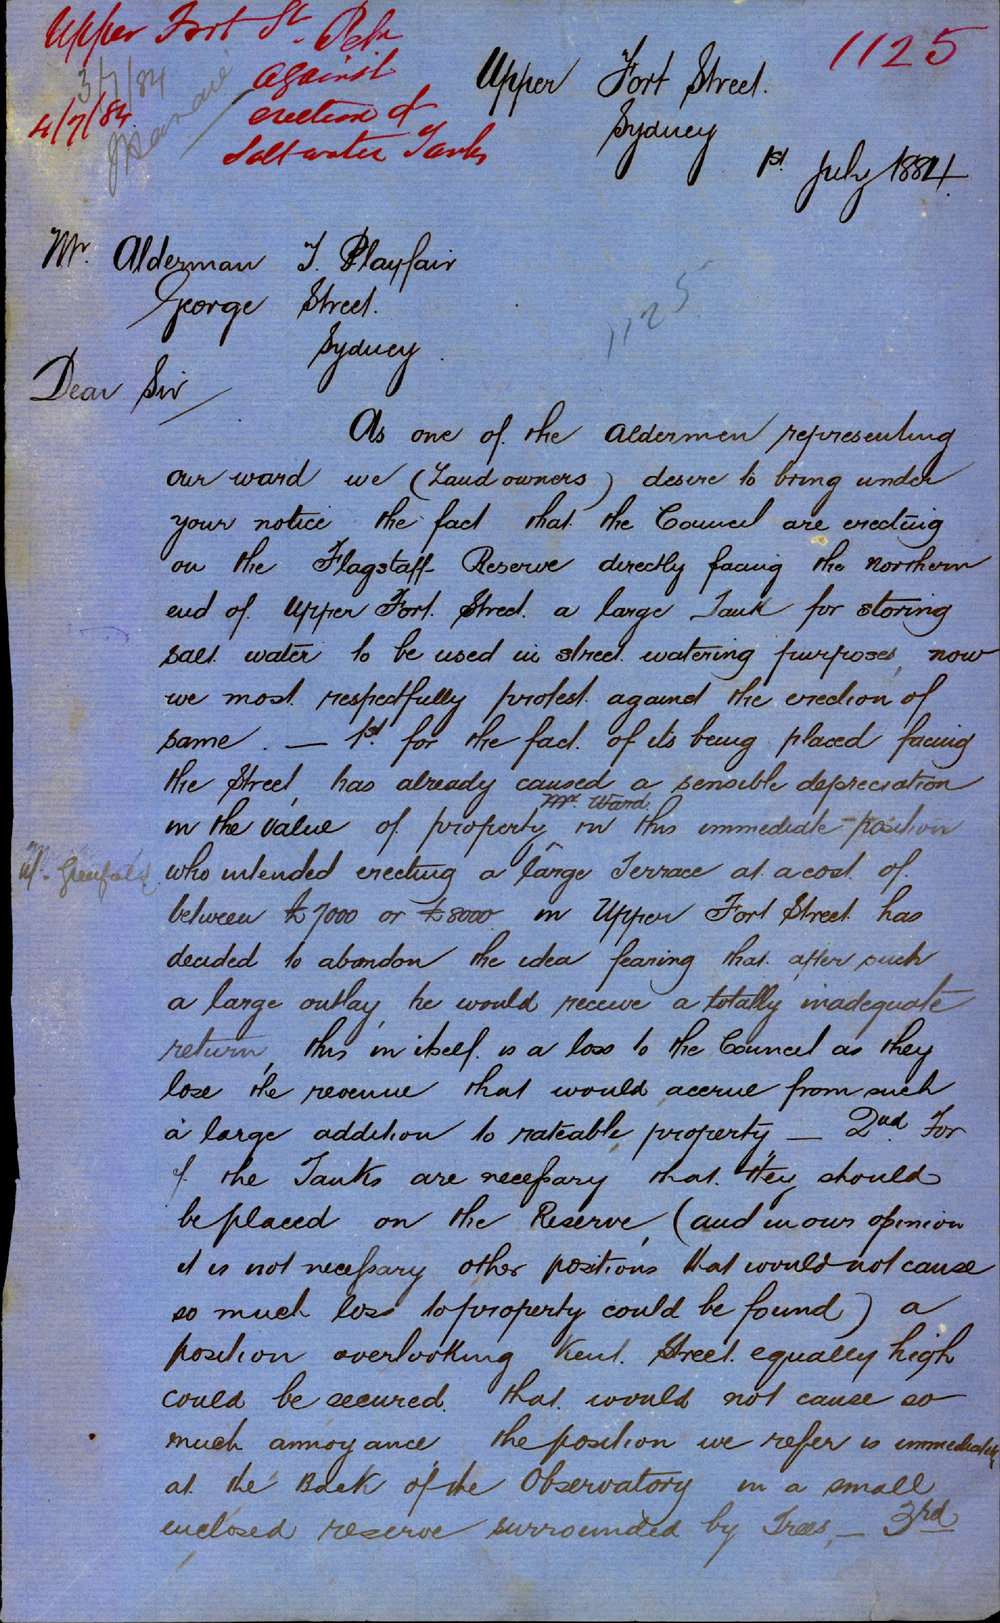 Upper Fort St. Petn
against
erection of
Salt water Tanks
3/7/84
4/7/84
1125
Upper Fort Street.
Sydney
1st July 1884.
Mr. Alderman T. Playfair
George Street.
Sydney.
1125
Dear Sir
As one of the Aldermen representing
our ward we (Landowners) desire to bring under
your notice the fact that the Council are erecting
on the Flagstaff Reserve directly facing the Northern
end of Upper Fort Street a large Tank for storing
salt water to be used in street watering purposes, now
we most respectfully protest against the erection of
same. — 1st for the fact of its being placed facing
the Street, has already caused a sensible depreciation
in the value of property, Mr. Ward in this immediate position
Mr. Greenfield
who intended erecting a large Terrace at a cost of
between £7000 or £8000 in Upper Fort Street has
decided to abandon the idea fearing that after such
a large outlay, he would receive a totally inadequate
return, this in itself is a loss to the Council as they
lose the revenue that would accrue from such
a large addition to rateable property — 2nd. For
if the Tanks are necessary that they should
be placed on the Reserve, (and in our opinion
it is not necessary other positions that would not cause
so much loss to property could be found) a
position overlooking Kent Street equally high
could be secured that would not cause so
much annoyance the position we refer is immediately
at the Back of the Observatory in a small
enclosed reserve surrounded by Trees, — 3rd